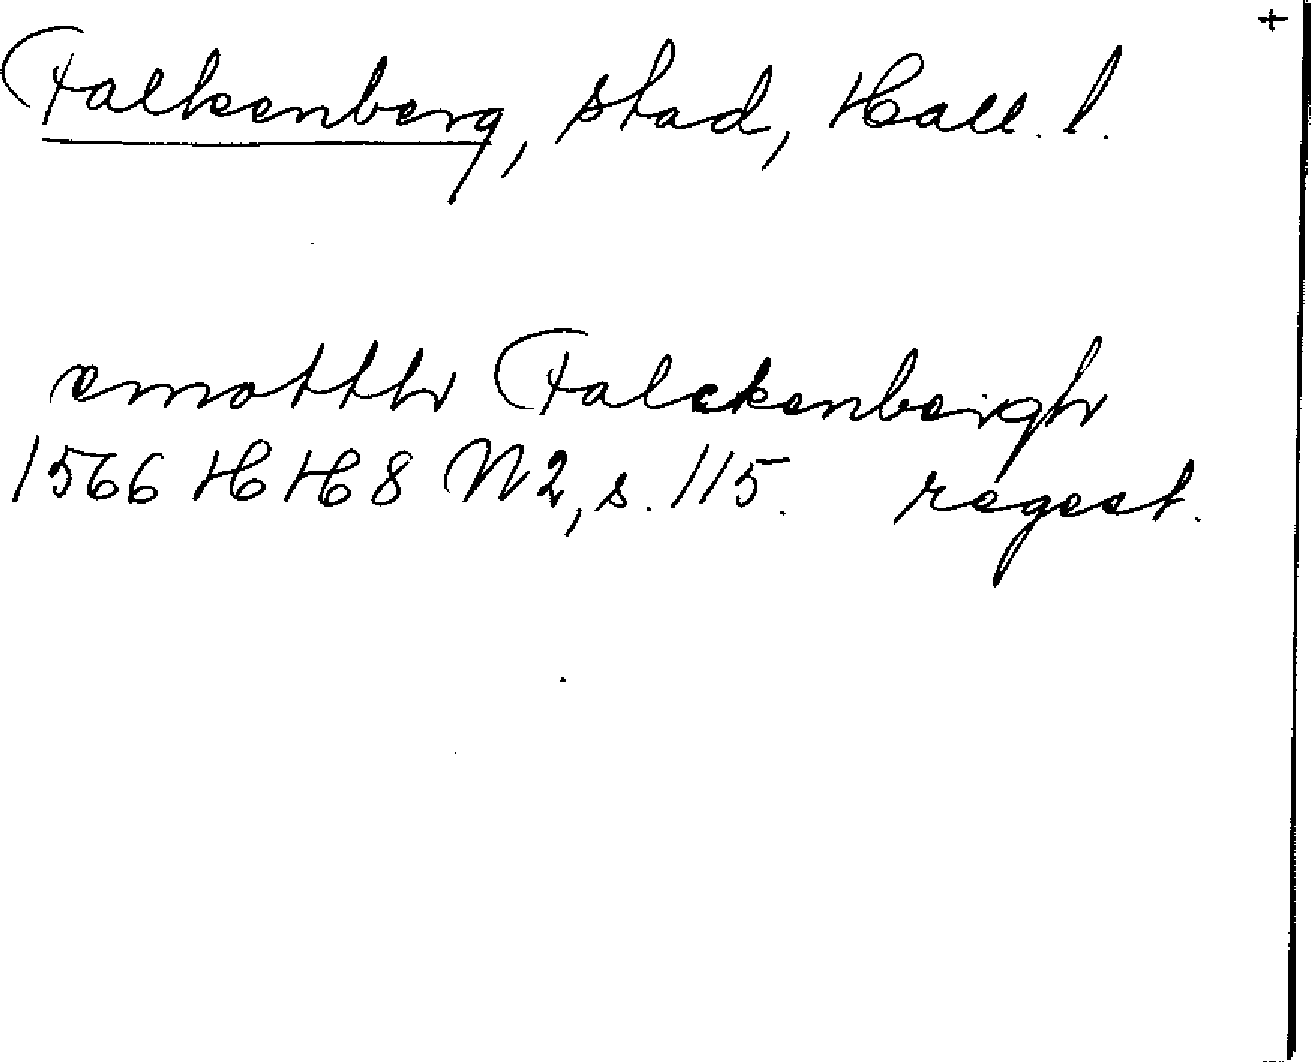 +
Falkenberg, stad, Hall. l.
emotth Falckenbergh
1566 HH8 N2, s. 115. regest.